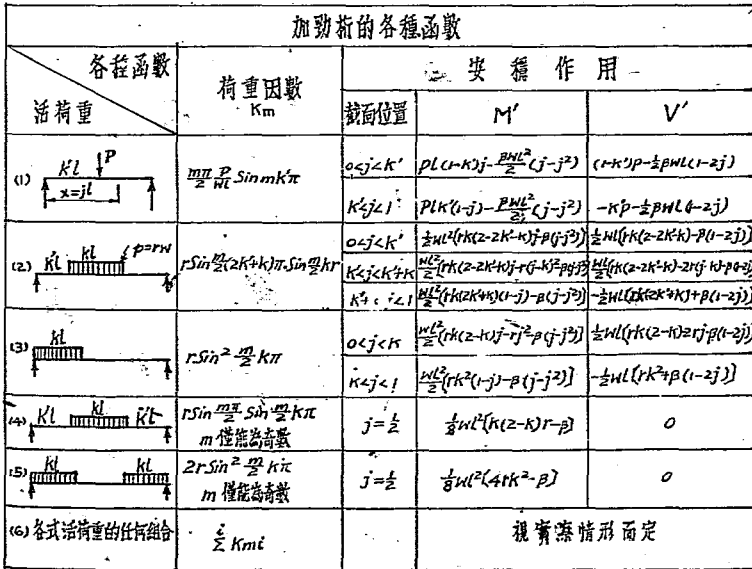 加勁桁的各種函數
各種函數
活荷重
荷重因數
Km
安穩作用
截面位置
M'
V'
(1) k'l P
x=jl
mπ/2 P/wl Sin mk'π
0<j<k'
Pl(1-k)j-βwl²/2(j-j²)
(1-k')P-½βwl(1-2j)
k'<j<1
Plk'(1-j)-βwl²/2(j-j²)
-k'P-½βwl(1-2j)
(2) k'l kl p=rw
rSin m/2(2k'+k)π.Sin m/2 kπ
0<j<k'
½wl²[rk(2-2k'-k)j-β(j-j²)]
½wl[rk(2-2k'-k)-β(1-2j)]
k'<j<k'+k
wl²/2[rk(2-2k'-k)j-r(j-k')²-β(j-j²)]
wl/2[rk(2-2k'-k)-2r(j-k')-β(1-2j)]
k'+k<j<1
wl²/2[rk(2k'+k)(1-j)-β(j-j²)]
-½wl[rk(2k'+k)+β(1-2j)]
(3) kl
rSin² m/2 kπ
0<j<k
wl²/2[rk(2-k)j-rj²-β(j-j²)]
½wl[rk(2-k)-2rj-β(1-2j)]
k<j<1
wl²/2[rk²(1-j)-β(j-j²)]
-½wl[rk²+β(1-2j)]
(4) k'l kl k'l
rSin mπ/2 . Sin m/2 kπ
m 僅能為奇數
j=½
⅛wl²[k(2-k)r-β]
0
(5) kl kl
2rSin² m/2 kπ
m 僅能為奇數
j=½
⅛wl²[4rk²-β]
0
(6) 各式活荷重的任何組合
i Σ Kmi
視實際情形而定